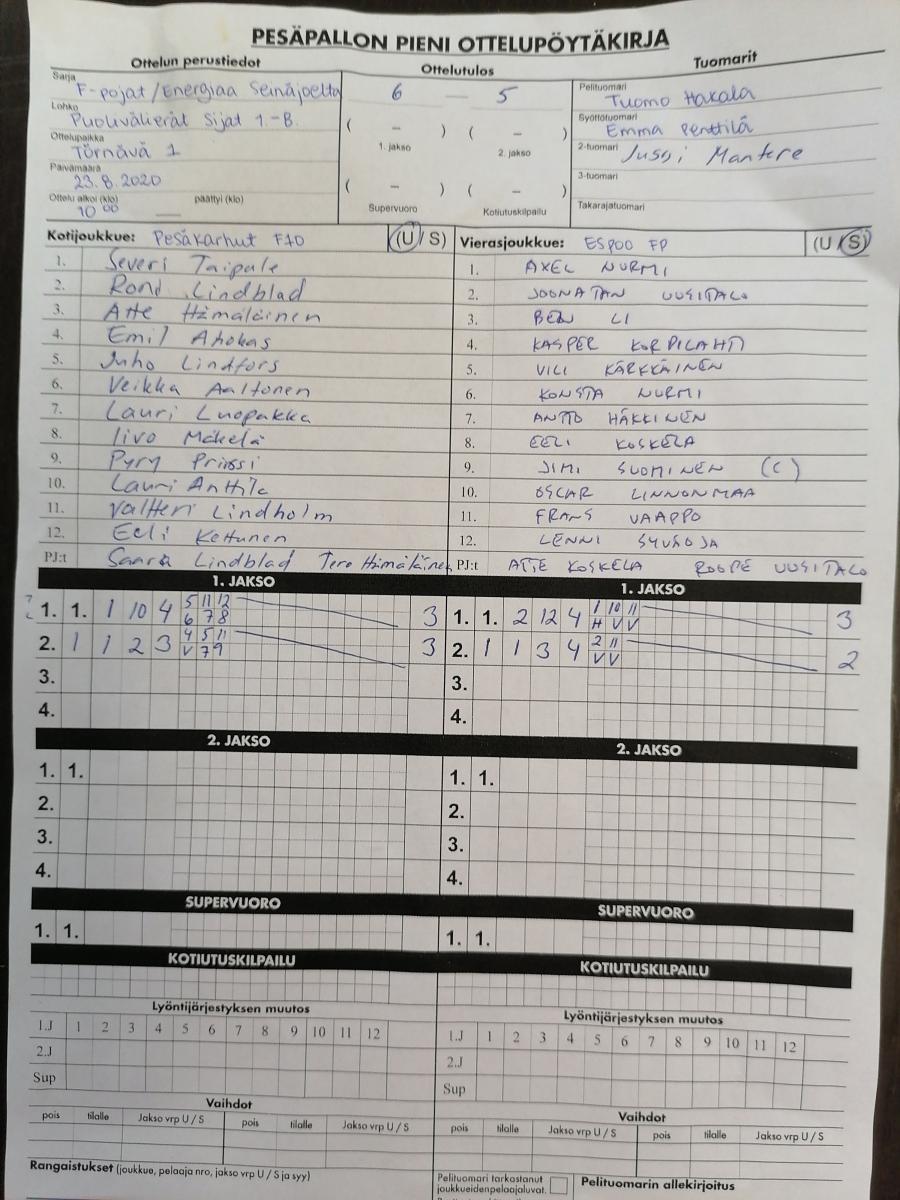 PESÄPALLON PIENI OTTELUPÖYTÄKIRJA
Ottelun perustiedot
Ottelutulos
Tuomarit
Sarja
F-pojat/Energiaa Seinäjoelta
Lohko
Puolivälierät Sijat 1.-8.
Ottelupaikka
Törnävä 1
Päivämäärä
23.8.2020
Ottelu alkoi (klo) päättyi (klo)
10 00
6 — 5
( – ) ( – )
1. jakso 2. jakso
( – ) ( – )
Supervuoro Kotiutuskilpailu
Pelituomari
Tuomo Hakala
Syöttötuomari
Emma Penttilä
2-tuomari Jussi Mantere
3-tuomari
Takarajatuomari
Kotijoukkue: Pesäkarhut F10 (U/S)
1. Severi Taipale
2. Roni Lindblad
3. Atte Hämäläinen
4. Emil Ahokas
5. Juho Lindfors
6. Veikka Aaltonen
7. Lauri Luopakka
8. Iivo Mäkelä
9. Pyry Priossi
10. Lauri Anttila
11. Valtteri Lindholm
12. Eeli Kettunen
PJ:t Saara Lindblad Tero Hämäläinen
Vierasjoukkue: ESPOO FP (U/S)
1. AXEL NURMI
2. JOONATAN UUSITALO
3. BEN LI
4. KASPER KORPILAHTI
5. VILI KÄRKKÄINEN
6. KONSTA NURMI
7. ANTTO HÄKKINEN
8. EELI KOSKELA
9. JIMI SUOMINEN (C)
10. OSCAR LINNONMAA
11. FRANS VAAPPO
12. LENNI SYVÄOJA
PJ:t ATTE KOSKELA ROOPE UUSITALO
1. JAKSO
1. 1. 1 10 4 5 11 12 3
6 7 8
2. 1 1 2 3 4 5 11 3
V 7 9
3.
4.
1. JAKSO
1. 1. 2 12 4 1 10 11 3
H V V
2. 1 1 3 4 2 11 2
V V
3.
4.
2. JAKSO
1. 1.
2.
3.
4.
2. JAKSO
1. 1.
2.
3.
4.
SUPERVUORO
1. 1.
SUPERVUORO
1. 1.
KOTIUTUSKILPAILU
KOTIUTUSKILPAILU
Lyöntijärjestyksen muutos
1.J 1 2 3 4 5 6 7 8 9 10 11 12
2.J
Sup
Lyöntijärjestyksen muutos
1.J 1 2 3 4 5 6 7 8 9 10 11 12
2.J
Sup
Vaihdot
pois tilalle Jakso vrp U / S pois tilalle Jakso vrp U / S
Vaihdot
pois tilalle Jakso vrp U / S pois tilalle Jakso vrp U / S
Rangaistukset (joukkue, pelaaja nro, jakso vrp U / S ja syy)
Pelituomari tarkastanut
joukkueidenpelaajaluvat.
Pelituomarin allekirjoitus